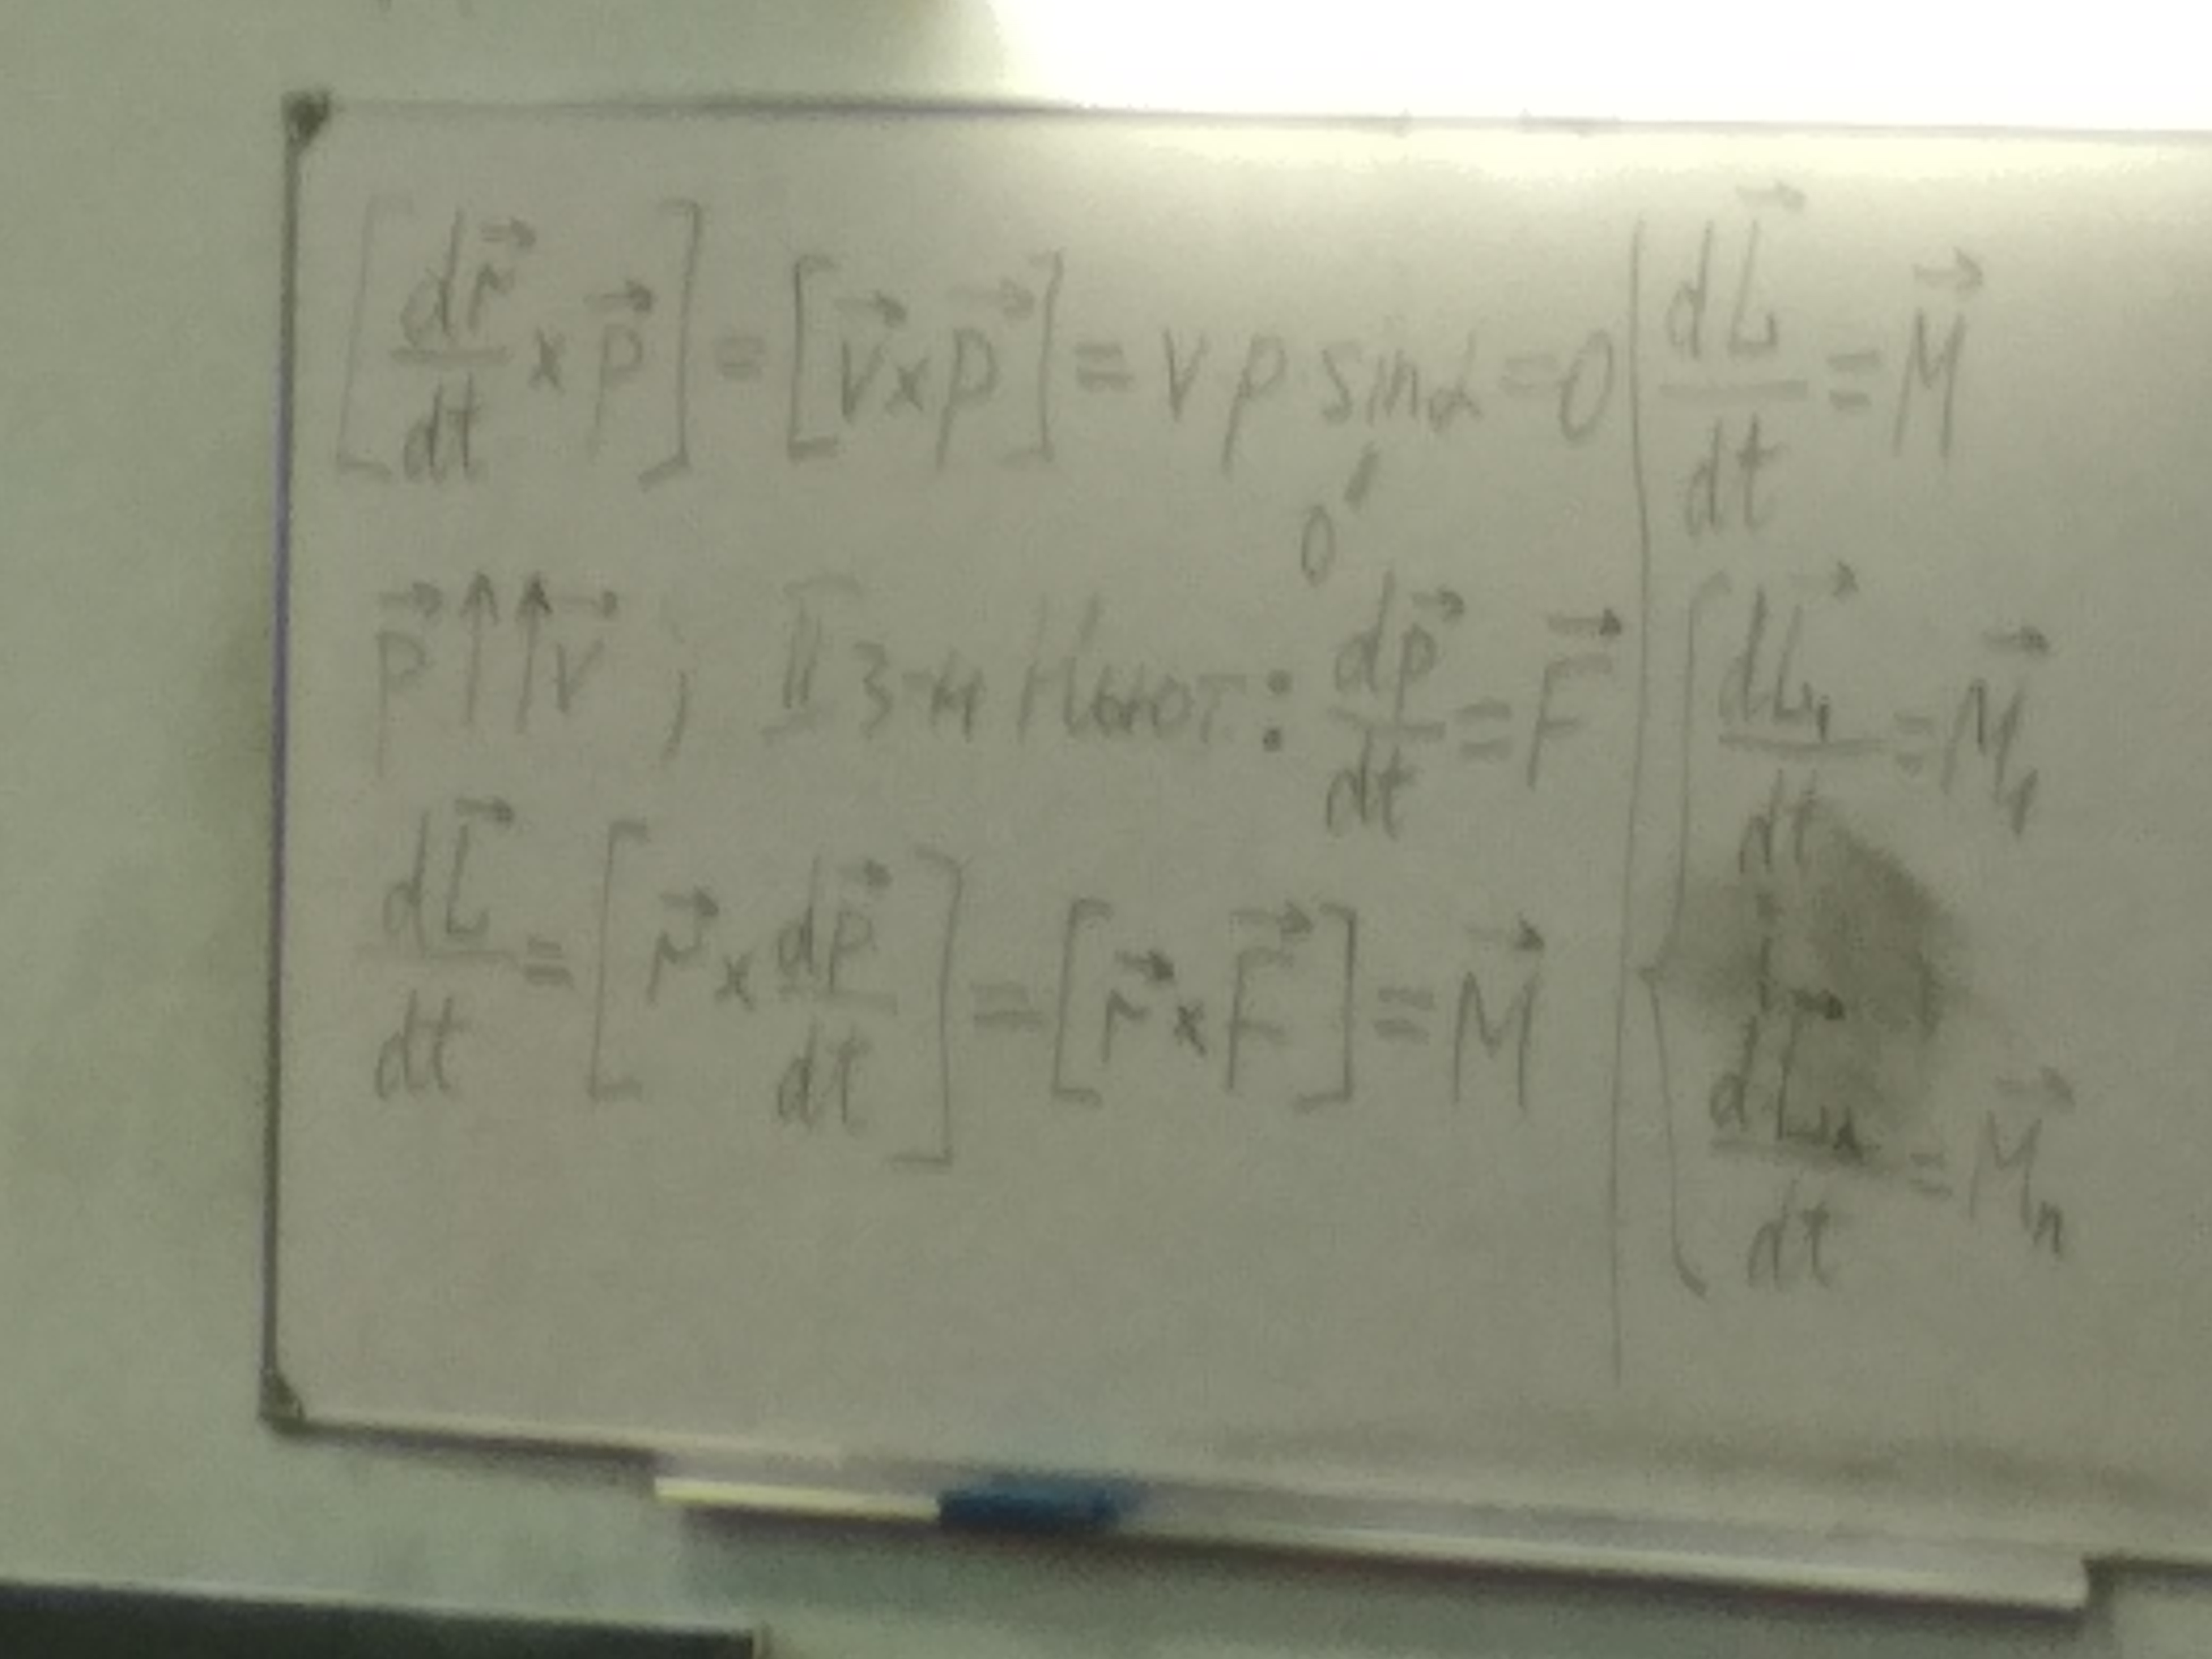 [dr⃗/dt × p⃗] = [v⃗ × p⃗] = v p sinα = 0
0
p⃗ ↑↑ v⃗ ; II з-н Ньют: dp⃗/dt = F⃗
dL⃗/dt = [r⃗ × dp⃗/dt] = [r⃗ × F⃗] = M⃗
dL⃗/dt = M⃗
{ dL⃗₁/dt = M⃗₁
⋮
dL⃗ₙ/dt = M⃗ₙ